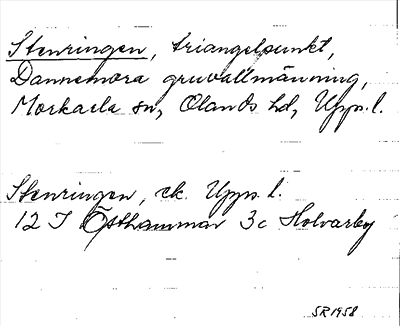 Stenringen, triangelpunkt,
Dannemora gruvallmänning,
Morkarla sn, Olands hd, Upps. l.
Stenringen, ek. Upps. l.
12 I Östhammar 3c Holvarby
SR 1958